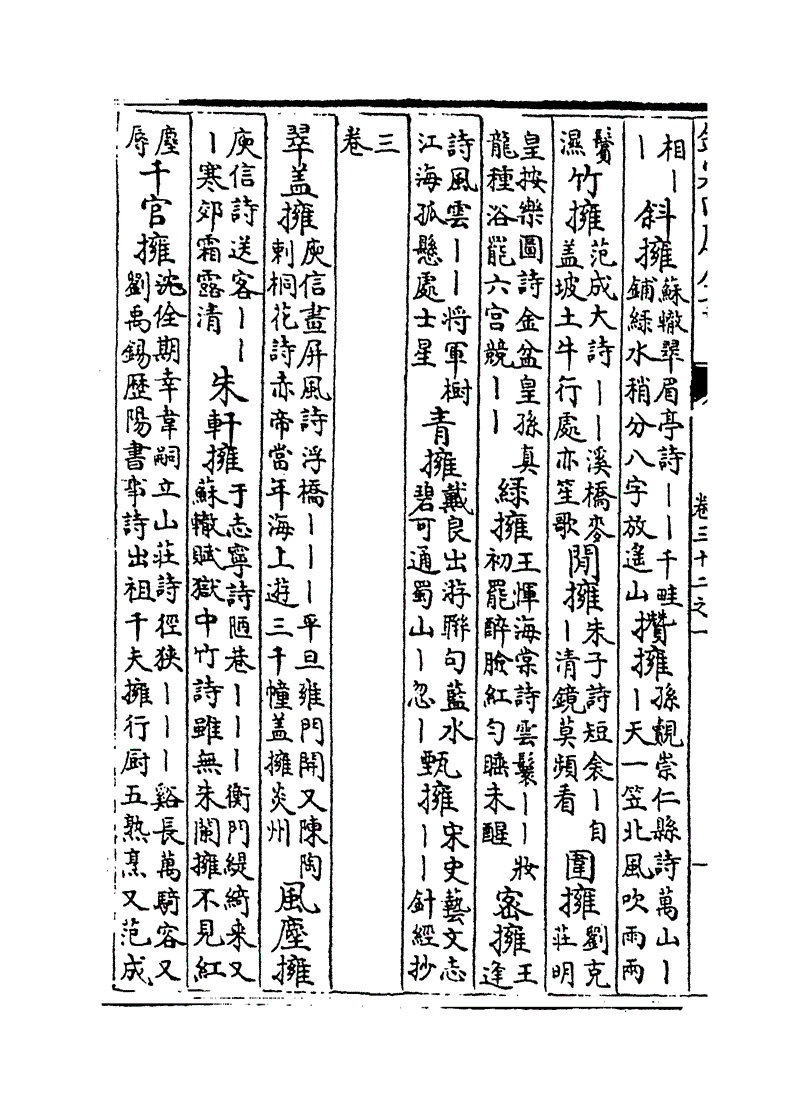 卷三十二之一
相丨丨斜擁蘇轍翠眉亭詩丨丨千畦鋪緑水稍分八字放遙山攢擁孫覿崇仁縣詩萬山丨丨天一笠北風吹雨兩
鬢濕竹擁范成大詩丨丨溪橋麥蓋坡土牛行處亦笙歌閒擁朱子詩短衾丨自丨清鏡莫頻看圍擁劉克莊明
皇按樂圖詩金盆皇孫真龍種浴罷六宫競丨丨緑擁王惲海棠詩雲鬟丨丨妝初罷醉臉紅勻睡未醒密擁王逢
詩風雲丨丨將軍樹江海孤懸處士星青擁戴良出游聯句藍水碧可通蜀山丨忽丨甄擁宋史藝文志丨丨針經抄
三卷
翠盖擁庾信畫屏風詩浮橋丨丨丨平旦雍門開又陳陶刺桐花詩赤帝當年海上遊三千幢盖擁炎州風塵擁
庾信詩送客丨丨丨寒郊霜露清朱軒擁于志寧詩陋巷丨丨丨衡門緹綺来又蘇轍賦獄中竹詩雖無朱闌擁不見紅
塵辱千官擁沈佺期幸韋嗣立山莊詩徑狹丨丨丨谿長萬騎容又劉禹錫歷陽書事詩出祖千夫擁行厨五熟烹又范成